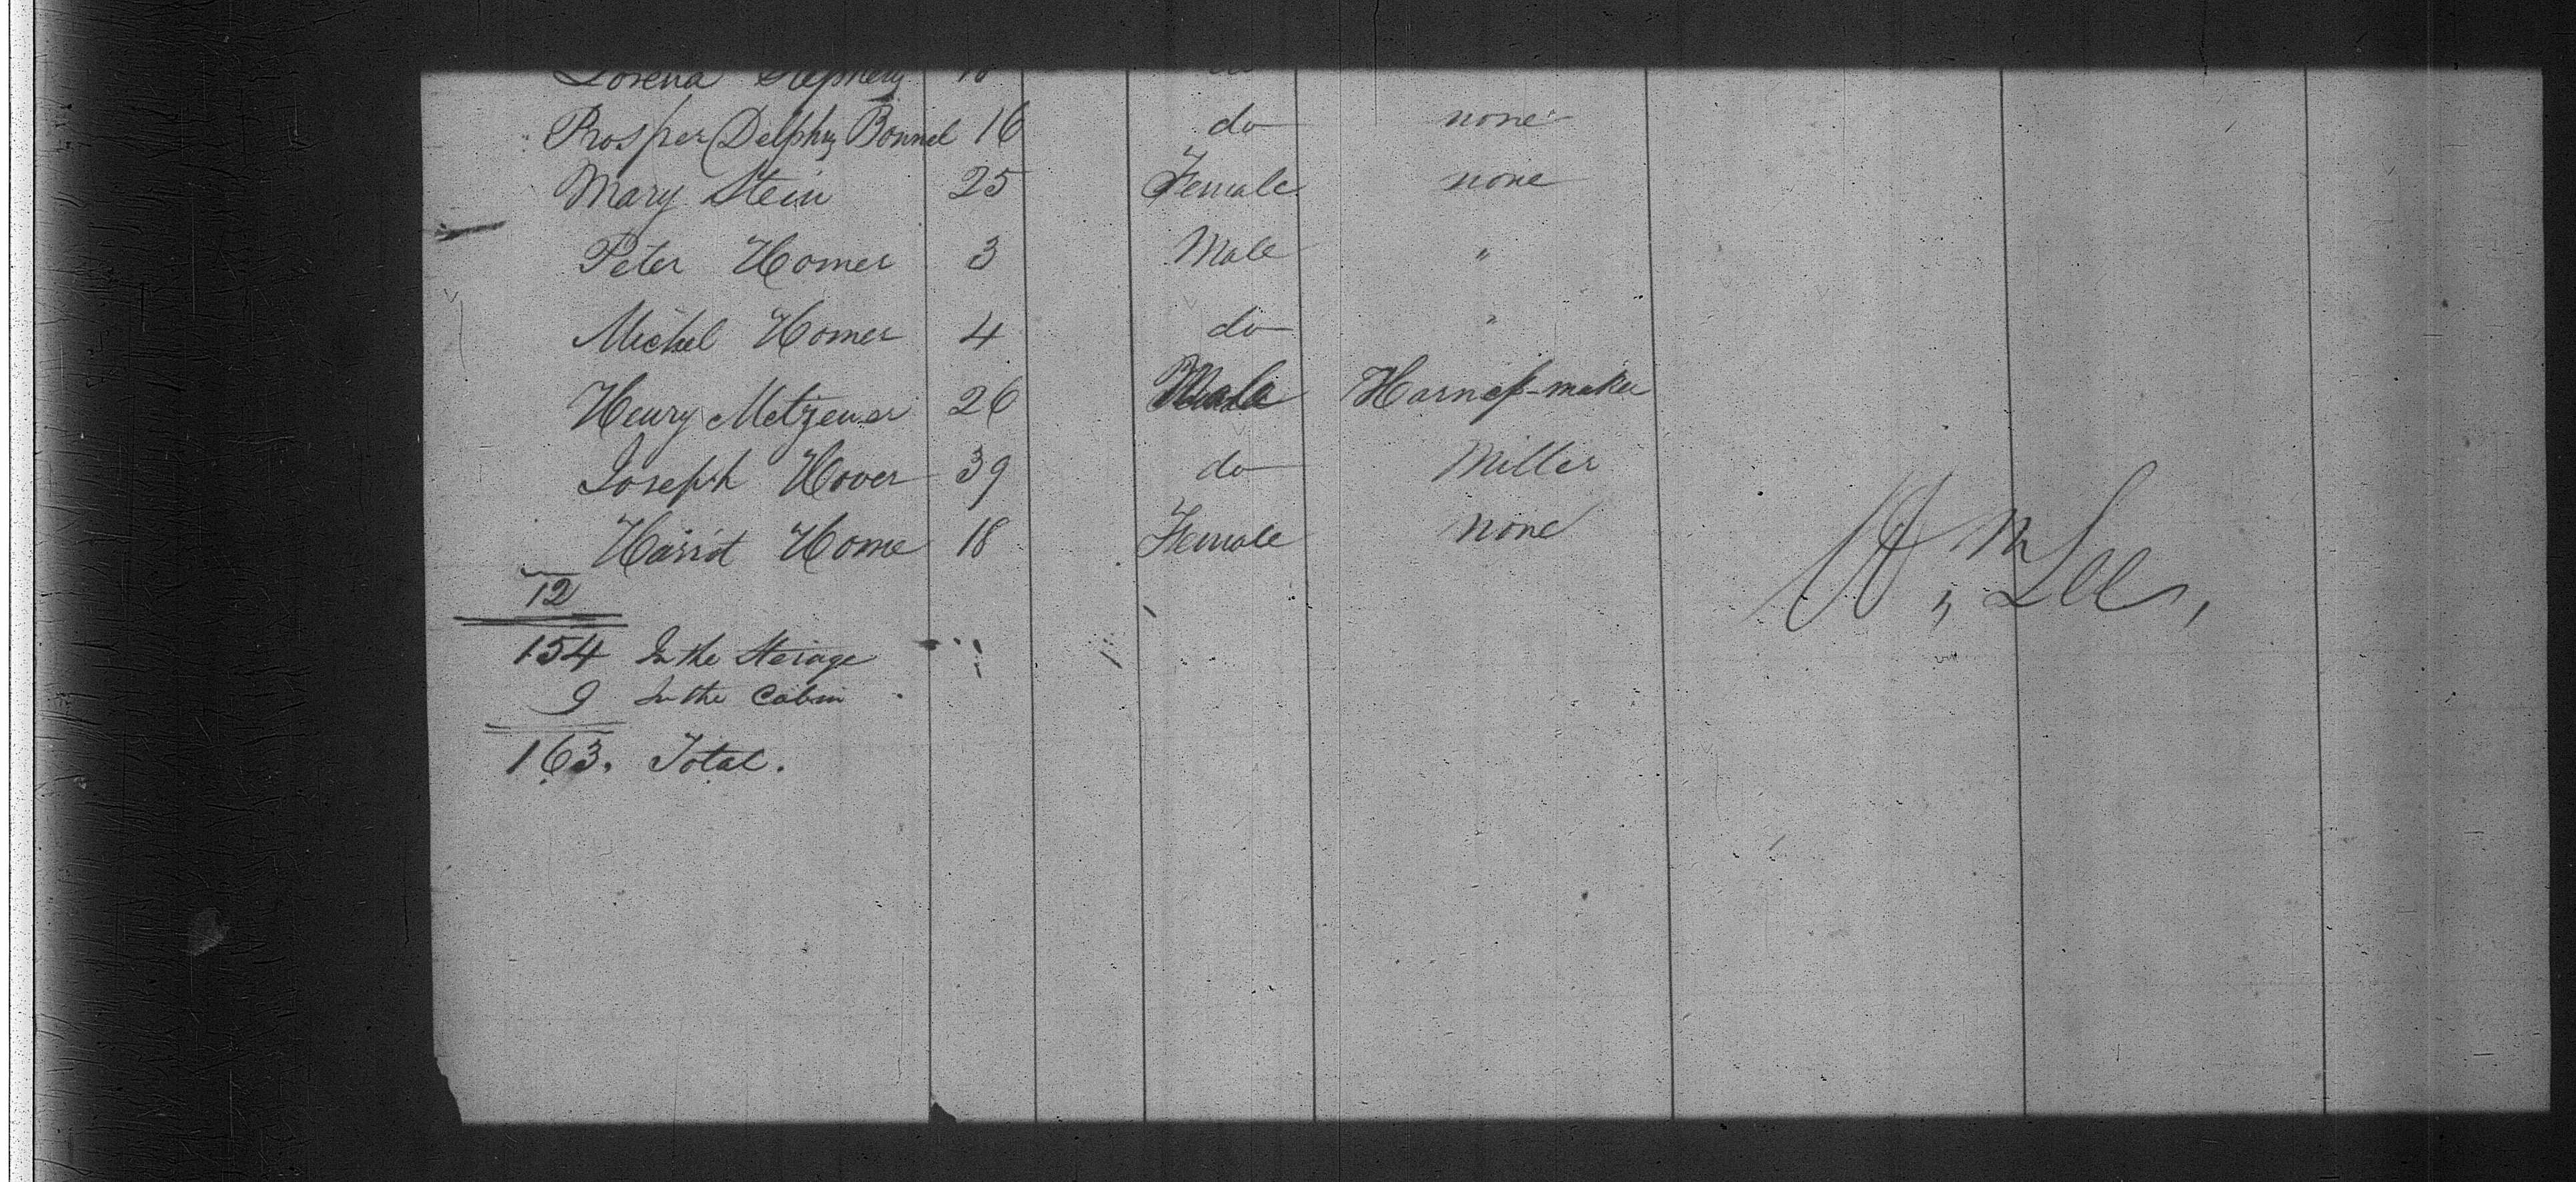 Lorena Stephens 18 do
Prosper Delphy Bonnel 16 do none
Mary Stein 25 Female none
Peter Homer 3 Male "
Michel Homer 4 do "
Henry Metzener 26 Male Harness-maker
Joseph Hover 39 do Miller
Harriot Home 18 Female none
12
154 In the Sterage
9 In the Cabin
163. Total.
Wm Lee,